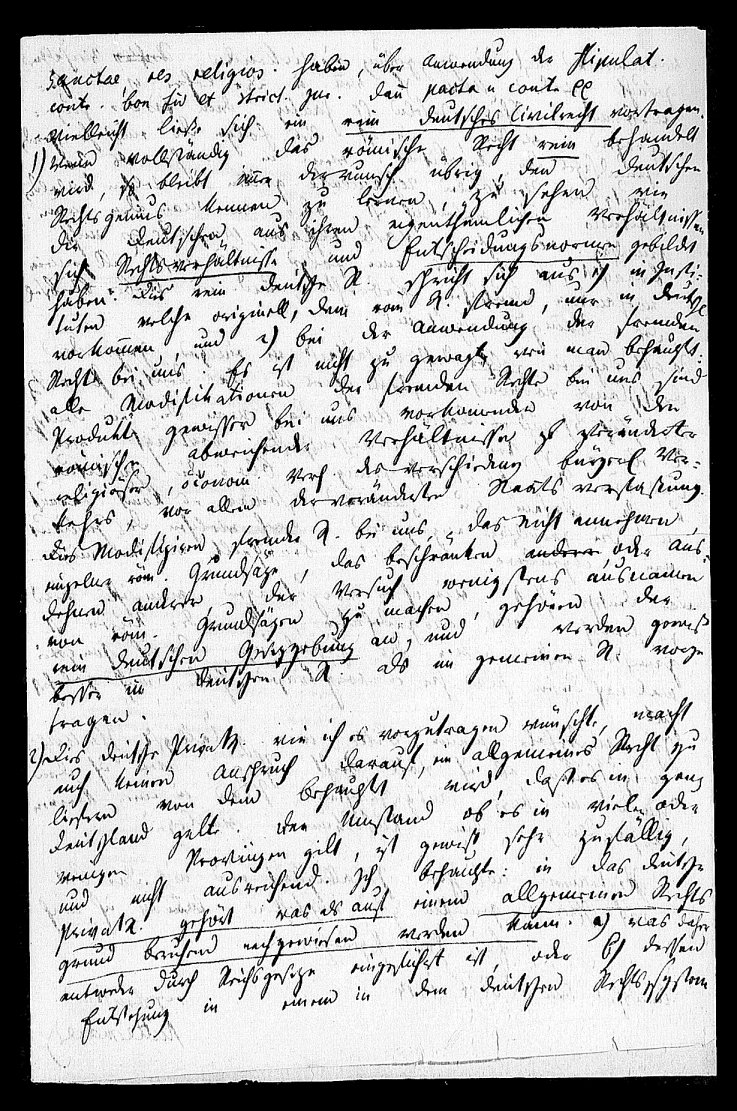 sanctae, res religios. haben, über Anwendung der Stipulat.
contr. bon. fid. et strict. jur. dann pacta u contr. pp
Vielleicht ließe sich ein rein deutsches Civilrecht vortragen.
1) Wenn vollständig das römische Recht rein behandelt
wird, so bleibt immer der Wunsch übrig, den deutschen
Rechtsgenius kennen zu lernen, zu sehen wie
die Deutschen aus ihren eigenthümlichen Verhältnissen
sich Rechtsverhältnisse und Entscheidungsnormen gebildet
haben. Dies rein deutsche R. spricht sich aus 1) in Insti-
tuten welche originell, dem röm. R. fremd, nur in Deutschl
vorkommen und 2) bei der Anwendung der fremden
Rechte bei uns. Es ist nicht zu gewagt wenn man behauptet:
alle Modifikationen der fremden Rechte bei uns sind
Produkte gewisser bei uns vorkommender von den
römischen abweichender Verhältnisse veränderter
religiöser, öconom. des verschieden bürgerl Ver-
kehrs, vor allem der veränderten Staatsverfassung.
Dies Modifiziren fremder R. bei uns, das nicht annehmen
einzelner röm. Grundsäze, das beschränken anderer, oder aus-
dehnen anderer, der Versuch wenigstens ausnamen
von röm. Grundsäzen zu machen, gehören der
rein deutschen Gesezgebung an, und werden gewiß
besser im deutschen R. als im gemeinen R. vorge
tragen.
2) Dies deutsche PrivatR. wie ich es vorzutragen wünschte, macht
auch keinen Anspruch darauf, ein allgemeines Recht zu
liefern von dem behauptet wird, daß es in ganz
Deutschland gelte. Der Umstand ob es in vielen oder
wenigen Provinzen gilt, ist gewiß sehr zufällig,
und nicht ausreichend. Ich behaupte: in das deutsche
PrivatR. gehört was als auf einem allgemeinen Rechts
grund beruhend nachgewiesen werden kann. a) was daher
entweder durch Reichsgeseze eingeführt ist, oder b) dessen
Entstehung in einem in dem deutschen Rechtssystem